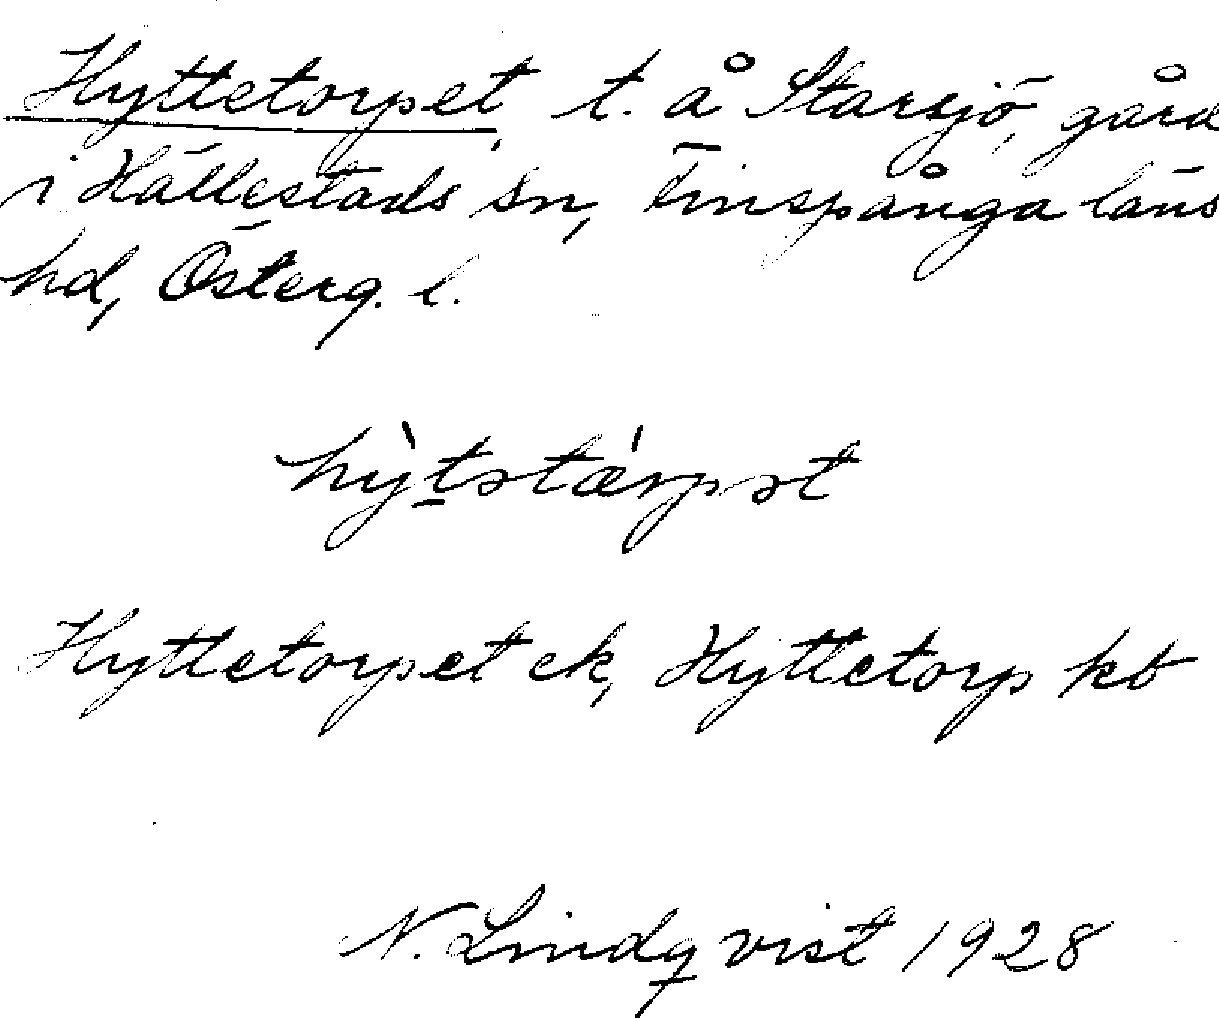 Hyttetorpet, t. å Starsjö, gård
i Hällestads sn, Finspånga läns
hd, Österg. l.
hỳtətǽrpət
Hyttetorpet ek, Hyttetorp kb
N. Lindqvist 1928